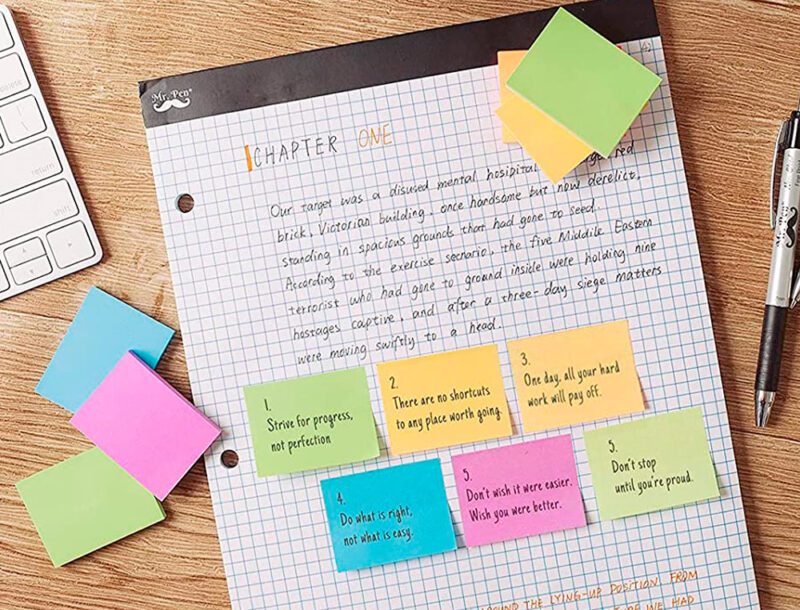 Mr. Pen
CHAPTER ONE
Our target was a disused mental hosipital red
brick, Victorian building, once handsome but now derelict,
standing in spacious grounds that had gone to seed.
According to the exercise secnario, the five Middile Eastern
terrorist who had gone to ground inside were holding nine
hostages captive, and after a three-day siege matters
were moving swiftly to a head.
1.
Strive for progress,
not perfection
2.
There are no shortcuts
to any place worth going.
3.
One day, all your hard
work will pay off.
4.
Do what is right,
not what is easy.
5.
Don't wish it were easier.
Wish you were better.
5.
Don't stop
until you're proud.
THE LYING-UP POSITION. FROM
WE HAD
return
shift
Mr. Pen